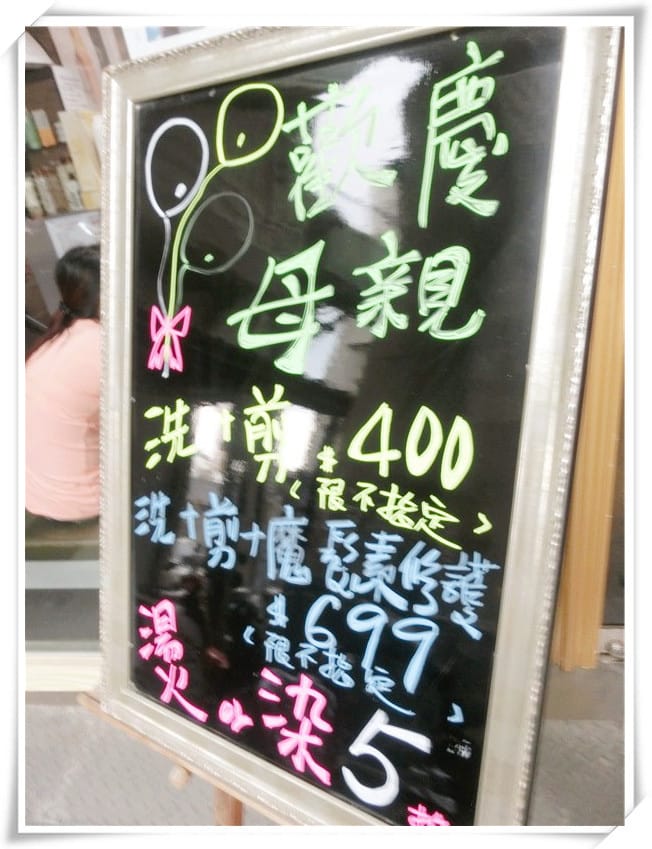 歡慶
母親
洗+剪 $400
(限不指定)
洗+剪+魔髮素修護
$699
(限不指定)
燙 or 染 5